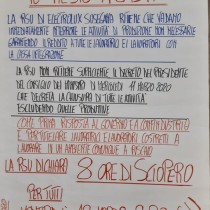 LA RSU DI ELECTROLUX SUSEGANA RITIENE CHE VADANO
IMMEDIATAMENTE INTERROTTE LE ATTIVITÀ DI PRODUZIONE NON NECESSARIE
GARANTENDO IL REDDITO A TUTTE LE LAVORATRICI ED I LAVORATORI CON
LA CASSA INTEGRAZIONE
LA RSU NON RITIENE SUFFICIENTE IL DECRETO DEL PRESIDENTE
DEL CONSIGLIO DEI MINISTRI DI MERCOLEDÌ 11 MARZO 2020
CHE DECRETA LA CHIUSURA DI TUTTE LE ATTIVITÀ
ESCLUDENDO QUELLE PRODUTTIVE
COME PRIMA RISPOSTA AL GOVERNO E A CONFINDUSTRIA
E PER TUTELARE LAVORATRICI E LAVORATORI COSTRETTI A
LAVORARE IN UN AMBIENTE COMUNQUE A RISCHIO
LA RSU DICHIARA 8 ORE DI SCIOPERO
PER TUTTI
MARZO 2020